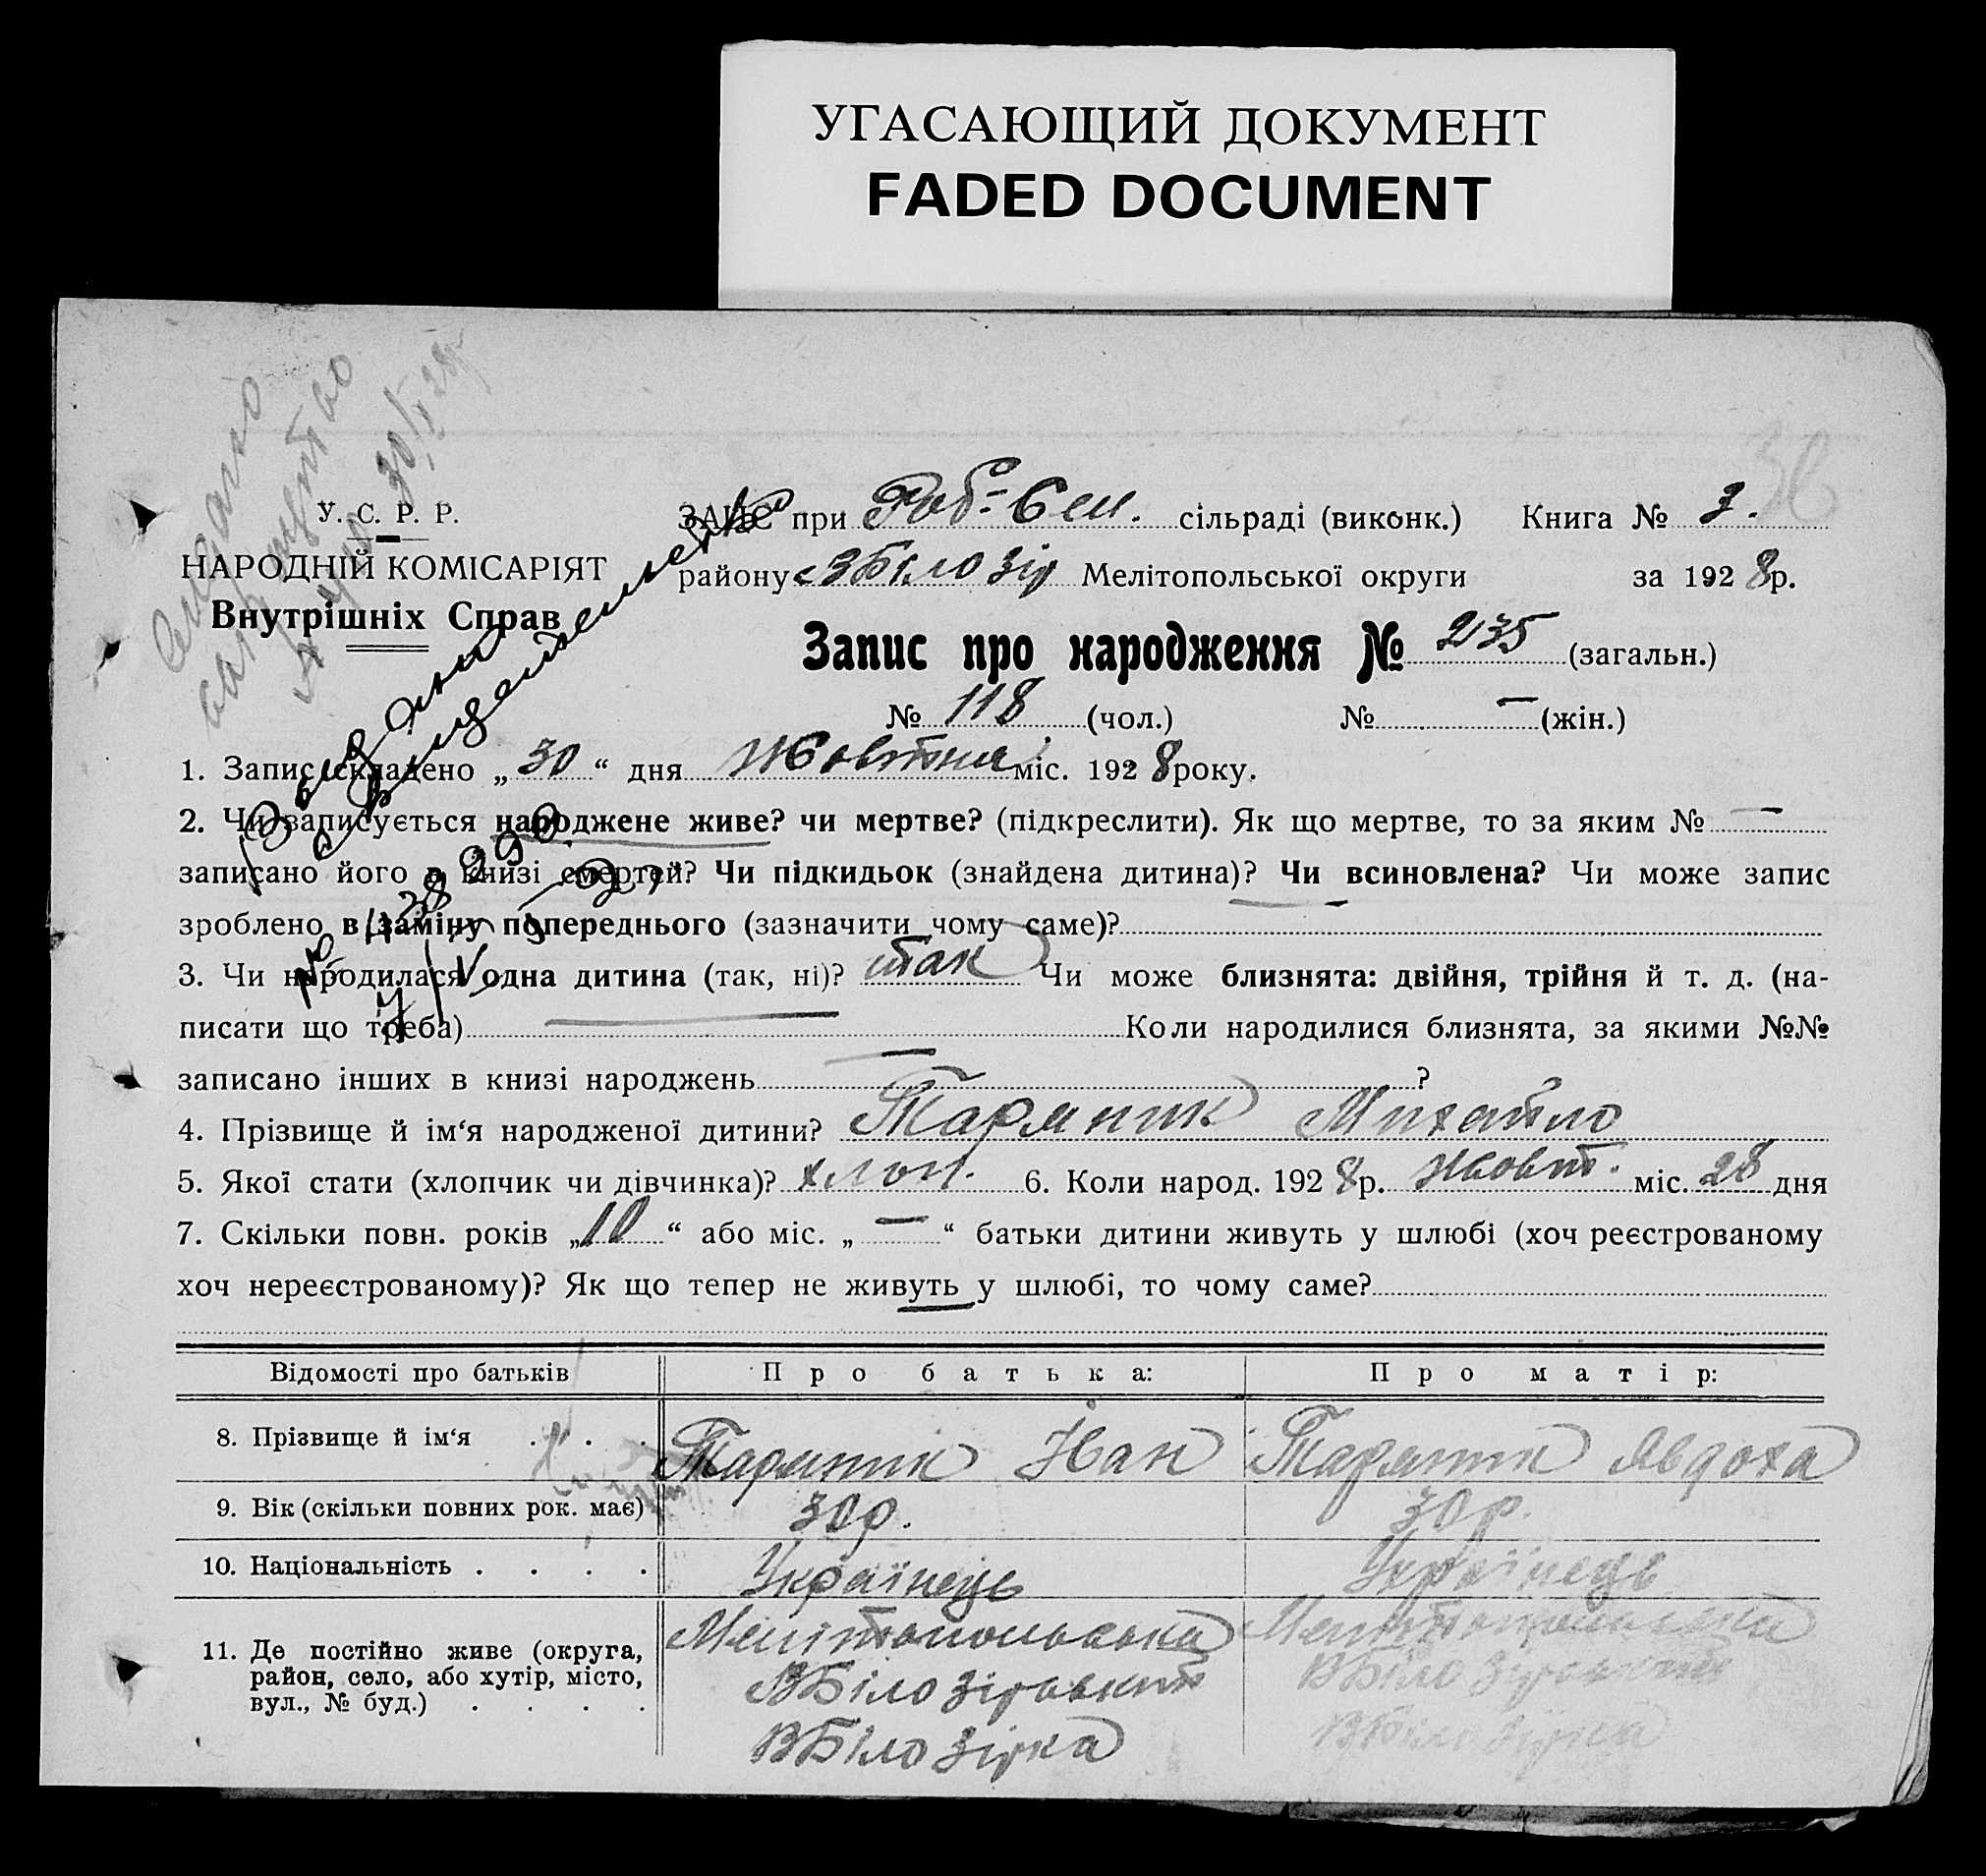 УГАСАЮЩИЙ ДОКУМЕНТ
FADED DOCUMENT
У. С. Р. Р.
НАРОДНІЙ КОМІСАРІЯТ
Внутрішніх Справ
ЗАГС при Роб-Сел. сільраді (виконк.) Книга № 3.
району ВБілозір Мелітопольської округи за 1928р.
Запис про народження № 235 (загальн.)
№ 118 (чол.) № — (жін.)
1. Запис складено „30“ дня Жовтня міс. 1928 року.
2. Чи записується народжене живе? чи мертве? (підкреслити). Як що мертве, то за яким № —
записано його в книзі смертей? Чи підкидьок (знайдена дитина)? Чи всиновлена? Чи може запис
зроблено в заміну попереднього (зазначити чому саме)?
3. Чи народилася одна дитина (так, ні)? так Чи може близнята: двійня, трійня й т. д. (на-
писати що треба) Коли народилися близнята, за якими №№
записано інших в книзі народжень — ?
4. Прізвище й ім‘я народженої дитини? Таряник Михайло
5. Якої стати (хлопчик чи дівчинка)? хлоп. 6. Коли народ. 1928р. Жовт. міс. 28 дня
7. Скільки повн. років „10“ або міс. „—“ батьки дитини живуть у шлюбі (хоч реєстрованому
хоч нереєстрованому)? Як що тепер не живуть у шлюбі, то чому саме?
Відомості про батьків Про батька: Про матір:
8. Прізвище й ім‘я . . . Таряник Іван Таряник Явдоха
9. Вік (скільки повних рок. має) 30р. 30р.
10. Національність . . . . Українець Українець
11. Де постійно живе (округа, Мелітопольська Мелітопольська
район, село, або хутір, місто, ВБілозірський ВБілозірський
вул., № буд.) . . . . ВБілозірка ВБілозірка